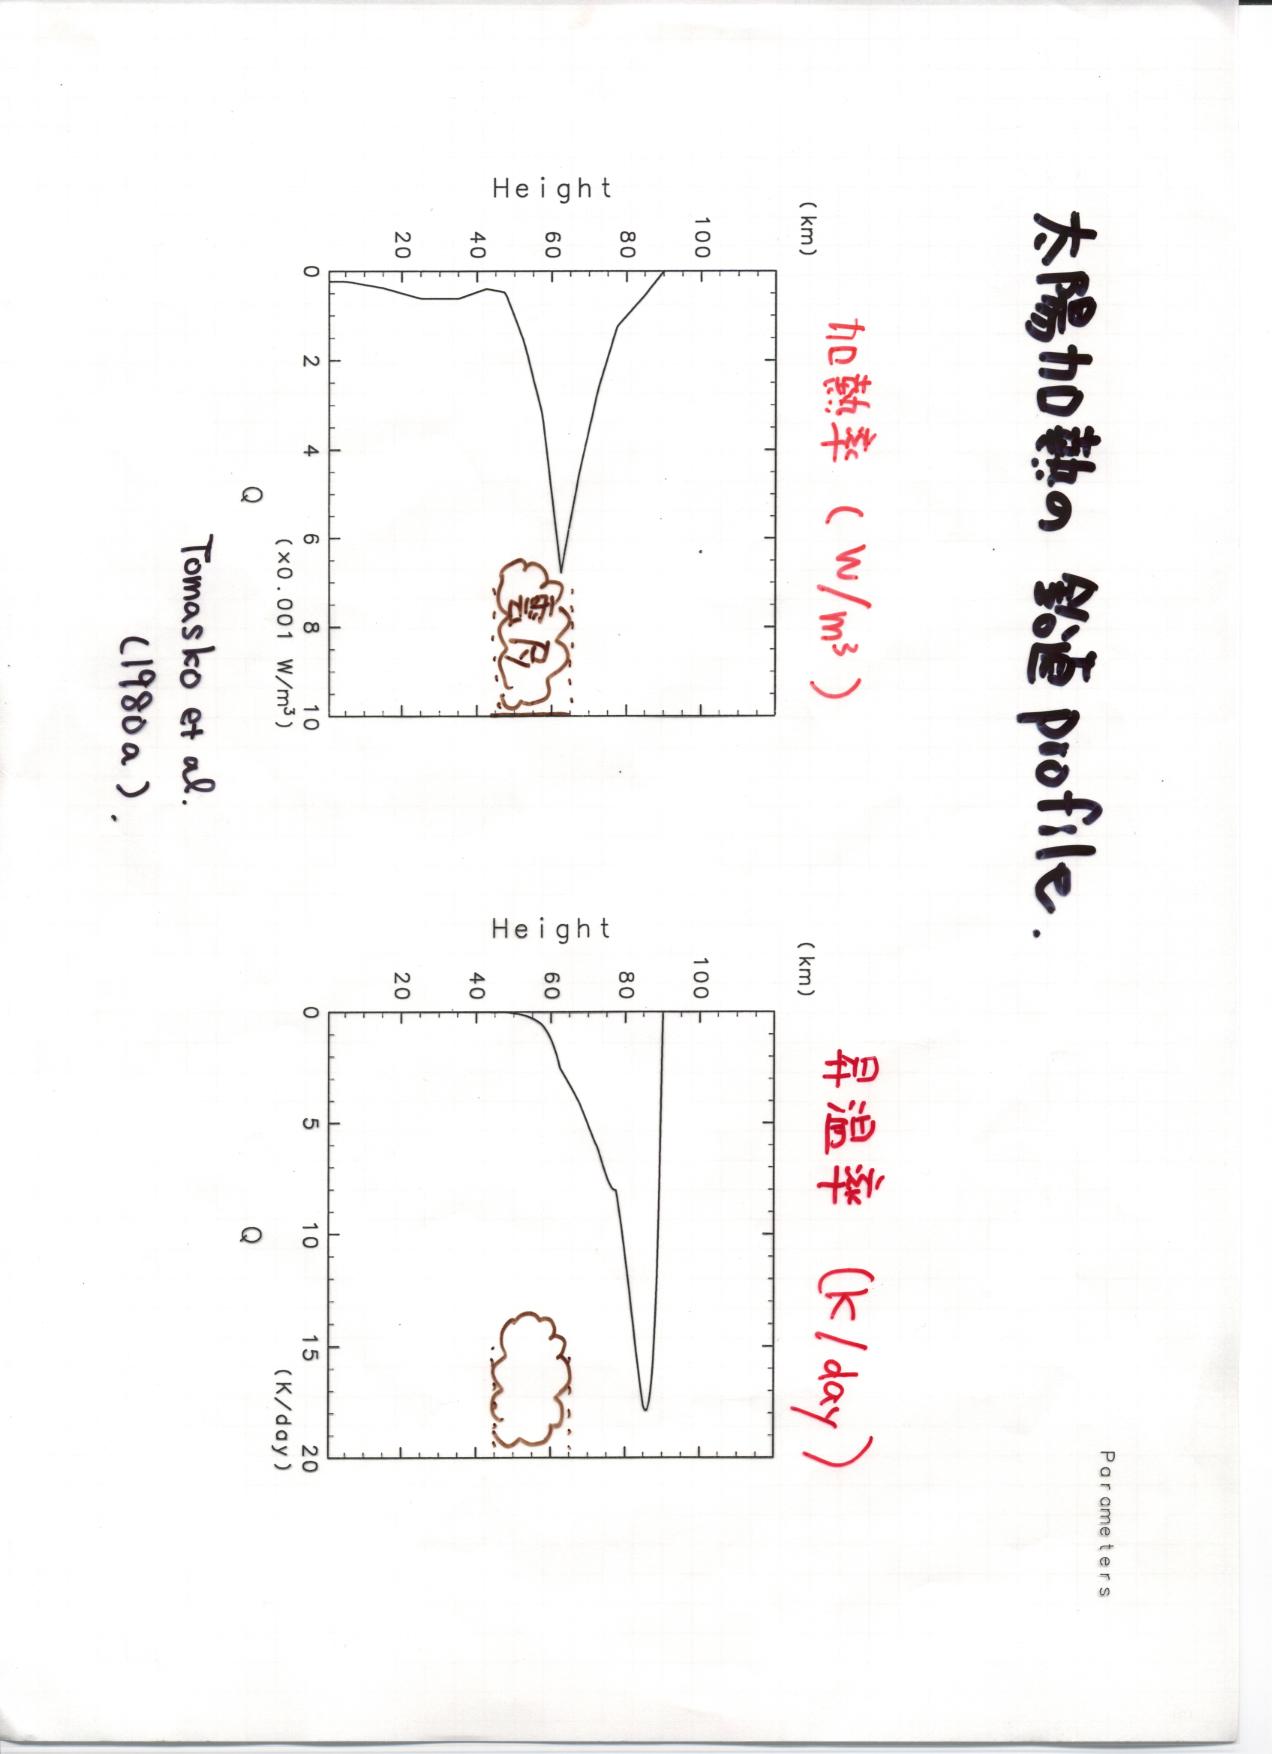 Parameters
太陽加熱の 鉛直 profile.
加熱率 (W/m³)
(km)
100
80
60
40
20
Height
0 2 4 6 8 10
(×0.001 W/m³)
Q
雲層
Tomasko et al.
(1980a).
昇温率 (K/day)
(km)
100
80
60
40
20
Height
0 5 10 15 20
(K/day)
Q